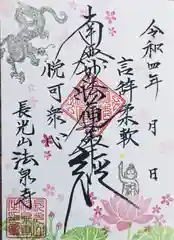 令和四年 月 日
言辞柔軟
南無妙法蓮華経
悦可衆心
長光山 法泉寺